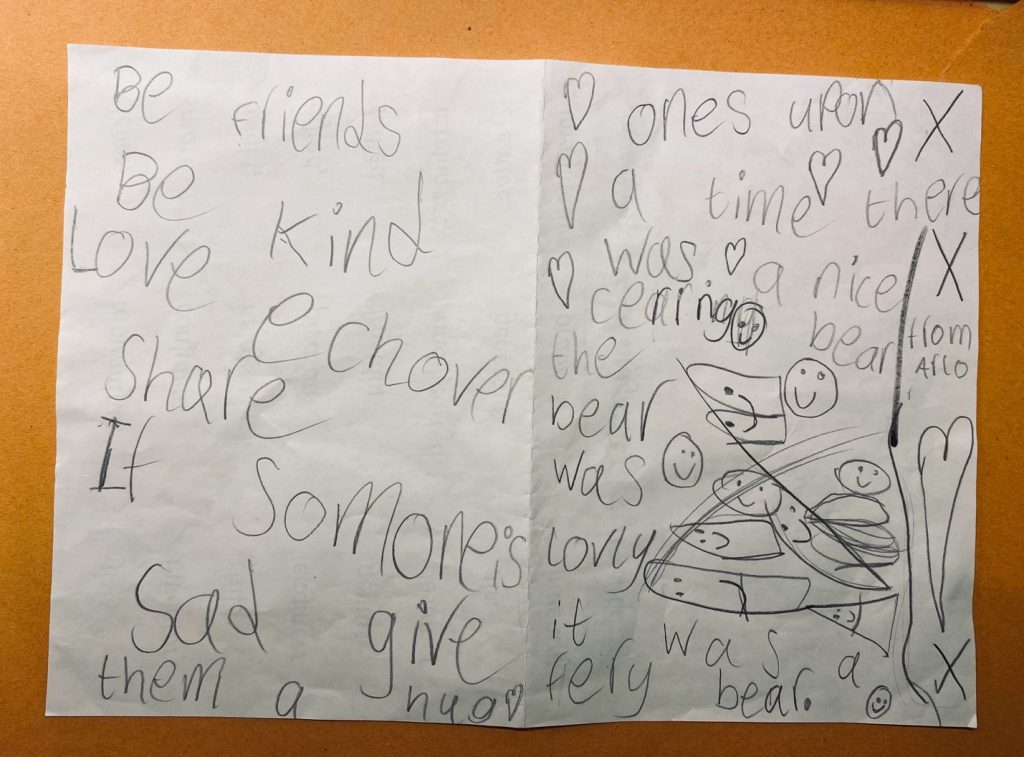 Be friends
Be kind
Love echover
Share
If somone is
Sad give
them a hug
ones upon
a time there
was a nice
cearing bear
the
bear
was
lovly
it was a
fery bear.
X
X
from
Arlo
X